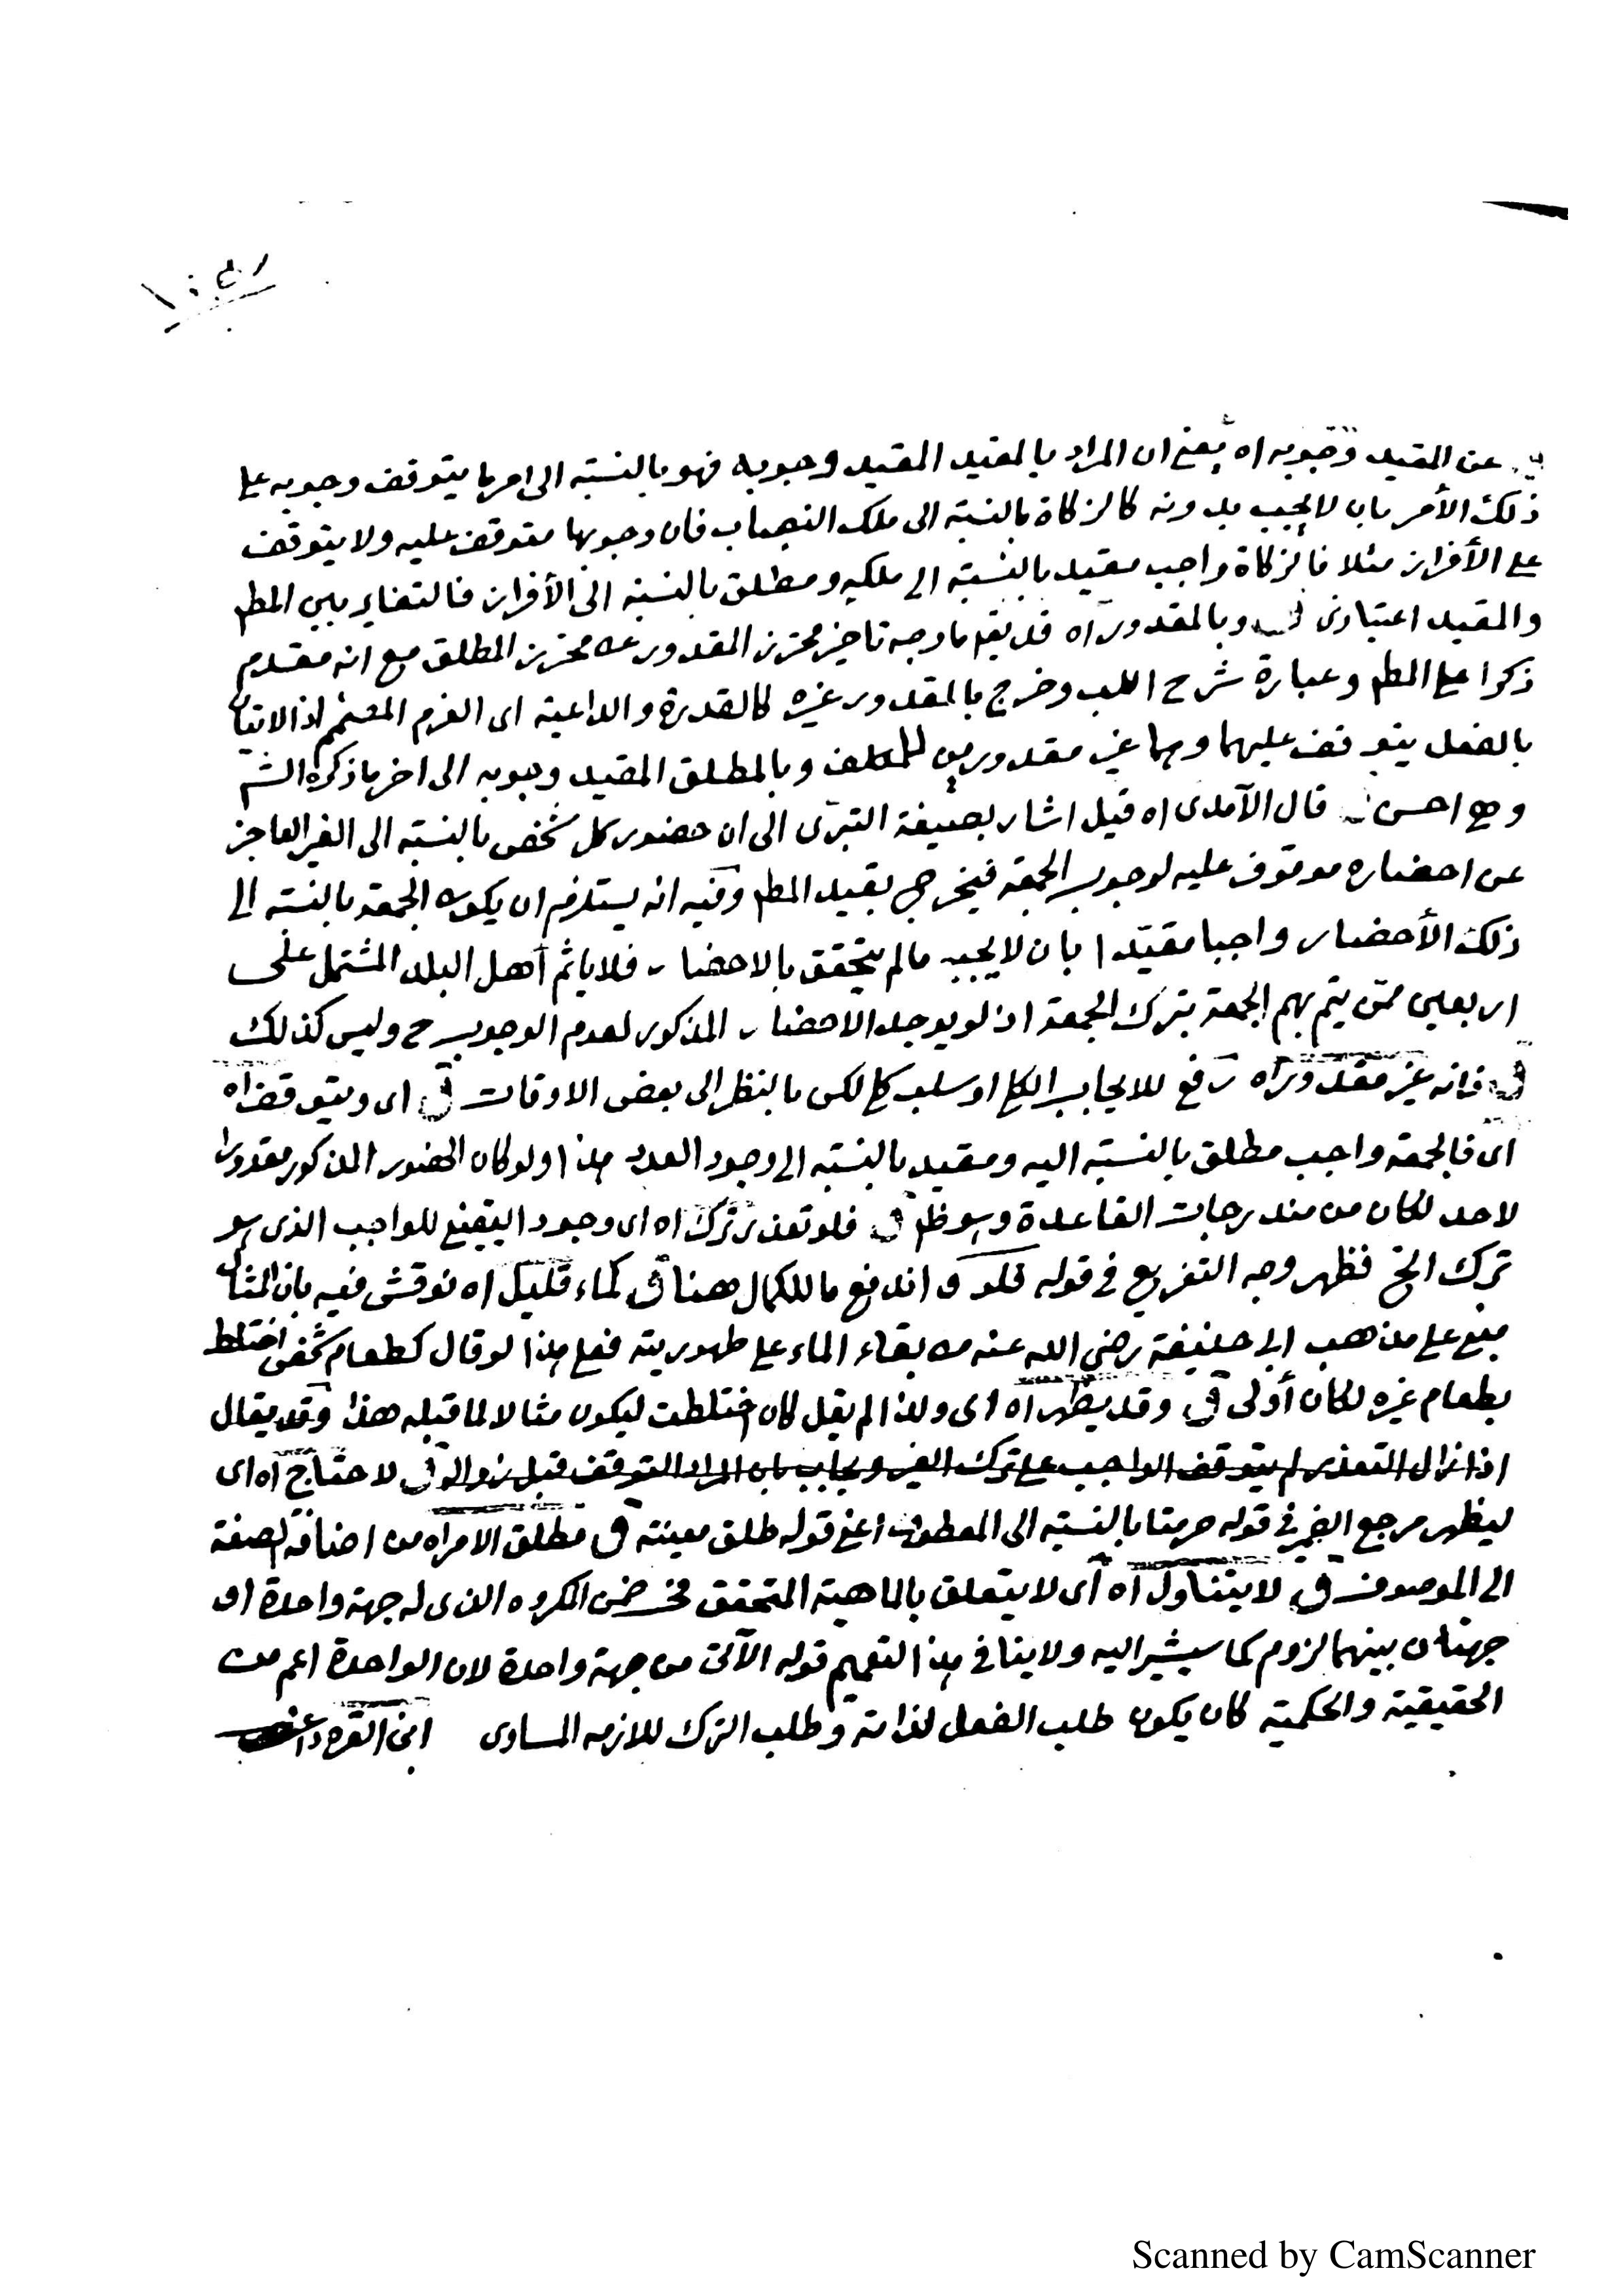 عن المقيد وجوبه اه يعني ان المراد بالمقيد المقيد وجوبه فهو بالنسبة الى امر ما يتوقف وجوبه على
ذلك الأمر بان لا يجب بدونه كالزكاة بالنسبة الى ملك النصاب فان وجوبها متوقف عليه ولا يتوقف
على الأفراز مثلا فالزكاة واجب مقيد بالنسبة الى ملكه ومطلق بالنسبة الى الأفراز فالتغاير بين المط
والمقيد اعتبارى وبالمقدور اه قد يقم ما وجه تاخير محترز المقدور عن محترز المطلق مع انه مقدم
ذكرا على المط وعبارة شرح اللب وخرج بالمقدور غيره كالقدرة والداعية اى العزم المصمم اذ الاتيان
بالفعل يتوقف عليهما وهما غير مقدورين للمكلف وبالمطلق المقيد وجوبه الى اخر ما ذكره الشم
وهى احسن قال الآمدى اه قيل اشار بصيغة التبرى الى ان حضور كل شخص بالنسبة الى الغير العاجز
عن احضاره موقوف عليه لوجوب الجمعة فيخرج بقيد المط وفيه انه يستلزم ان يكون الجمعة بالنسبة الى
ذلك الأحضار واجبا مقيدا بان لا يجب ما لم يتحقق بالاحضار فلا ياثم أهل البلد المشتمل على
اربعين ممن يتم بهم الجمعة بترك الجمعة اذ لو يوجد الاحضار المذكور لعدم الوجوب ح وليس كذلك
ق فانه غير مقدور اه رفع للايجاب الكلى او سلب كلى لكن بالنظر الى بعض الاوقات ق اى ويتوقف اه
اى فالجمعة واجب مطلق بالنسبة اليه ومقيد بالنسبة الى وجود العدد هذا ولو كان الحضور المذكور مقدورا
لاحد لكان من مندرجات القاعدة وهو ظ ق فلو تعذر ترك اه اى وجود اليقيني للواجب الذى هو
ترك الخ فظهر وجه التفريع في قوله فلو واندفع ما للكمال هنا ق كماء قليل اه نوقش فيه بان المثال
مبني على مذهب ابى حنيفة رضي الله عنه من بقاء الماء على طهوريته فعلى هذا لو قال كطعام شخص اختلط
بطعام غيره لكان أولى ق وقد يظهر اه اى ولذا لم يقل كان اختلطت ليكون مثالا لما قبله هذا وقد يقال
اذا زال التعذر لم يتوقف الواجب على ترك الغير ويجاب بان المراد التوقف قبل زواله ق لاحتاج اه اى
ليظهر مرجع الضمير في قوله حرمتا بالنسبة الى المعطوف اعني قوله طلق معينة ق مطلق الامر اه من اضافة الصفة
الى الموصوف ق لا يتناول اه أى لا يتعلق بالماهية المتحقق في ضمن المكروه الذى له جهة واحدة او
جهتان بينهما لزوم كما سيشير اليه ولا ينافي هذا التعميم قوله الآتى من جهة واحدة لان الواحدة اعم من
الحقيقية والحكمية كان يكون طلب الفعل لذاته وطلب الترك للازمه المساوى ابن القره داغى
Scanned by CamScanner